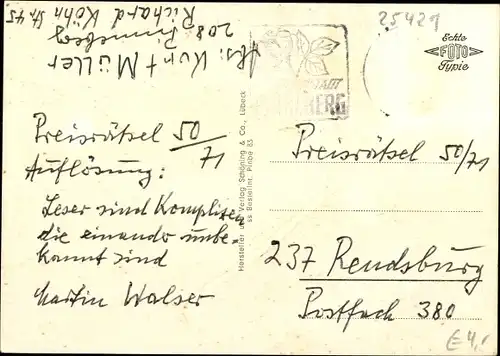 Abs: Kurt Müller
208 Pinneberg
Richard Köhn Str. 45
25429
Echte
FOTO
Typie
Preisrätsel 50/71
Auflösung:
Leser sind Komplizen
die einander unbe-
kannt sind
Martin Walser
Hersteller und Verlag Schöning & Co., Lübeck
Bestellnr. Pinbe 83
Preisrätsel 50/71
237 Rendsburg
Postfach 380
€ 4,-